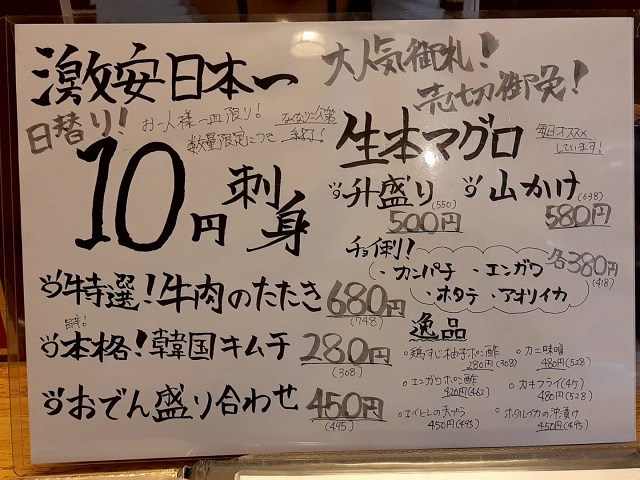 激安日本一
大人気御札!
売切御免!
日替り!
お一人様一皿限り!
数量限定につき
なくなり次第
終了!
10円
刺身
生本マグロ
毎日オススメ
しています!
升盛り(550)
500円
山かけ(638)
580円
チョイ刺!
各380円
(418)
・カンパチ ・エンガワ
・ホタテ ・アオリイカ
特選!牛肉のたたき 680円
(748)
旨辛!
本格!韓国キムチ 280円
(308)
おでん盛り合わせ 450円
(495)
逸品
○鶏すじ柚子ポン酢
280円(308)
○カニ味噌
480円(528)
○エンガワポン酢
420円(462)
○カキフライ(4ケ)
480円(528)
○エイヒレの天ぷら
450円(495)
○ホタルイカの沖漬け
450円(495)